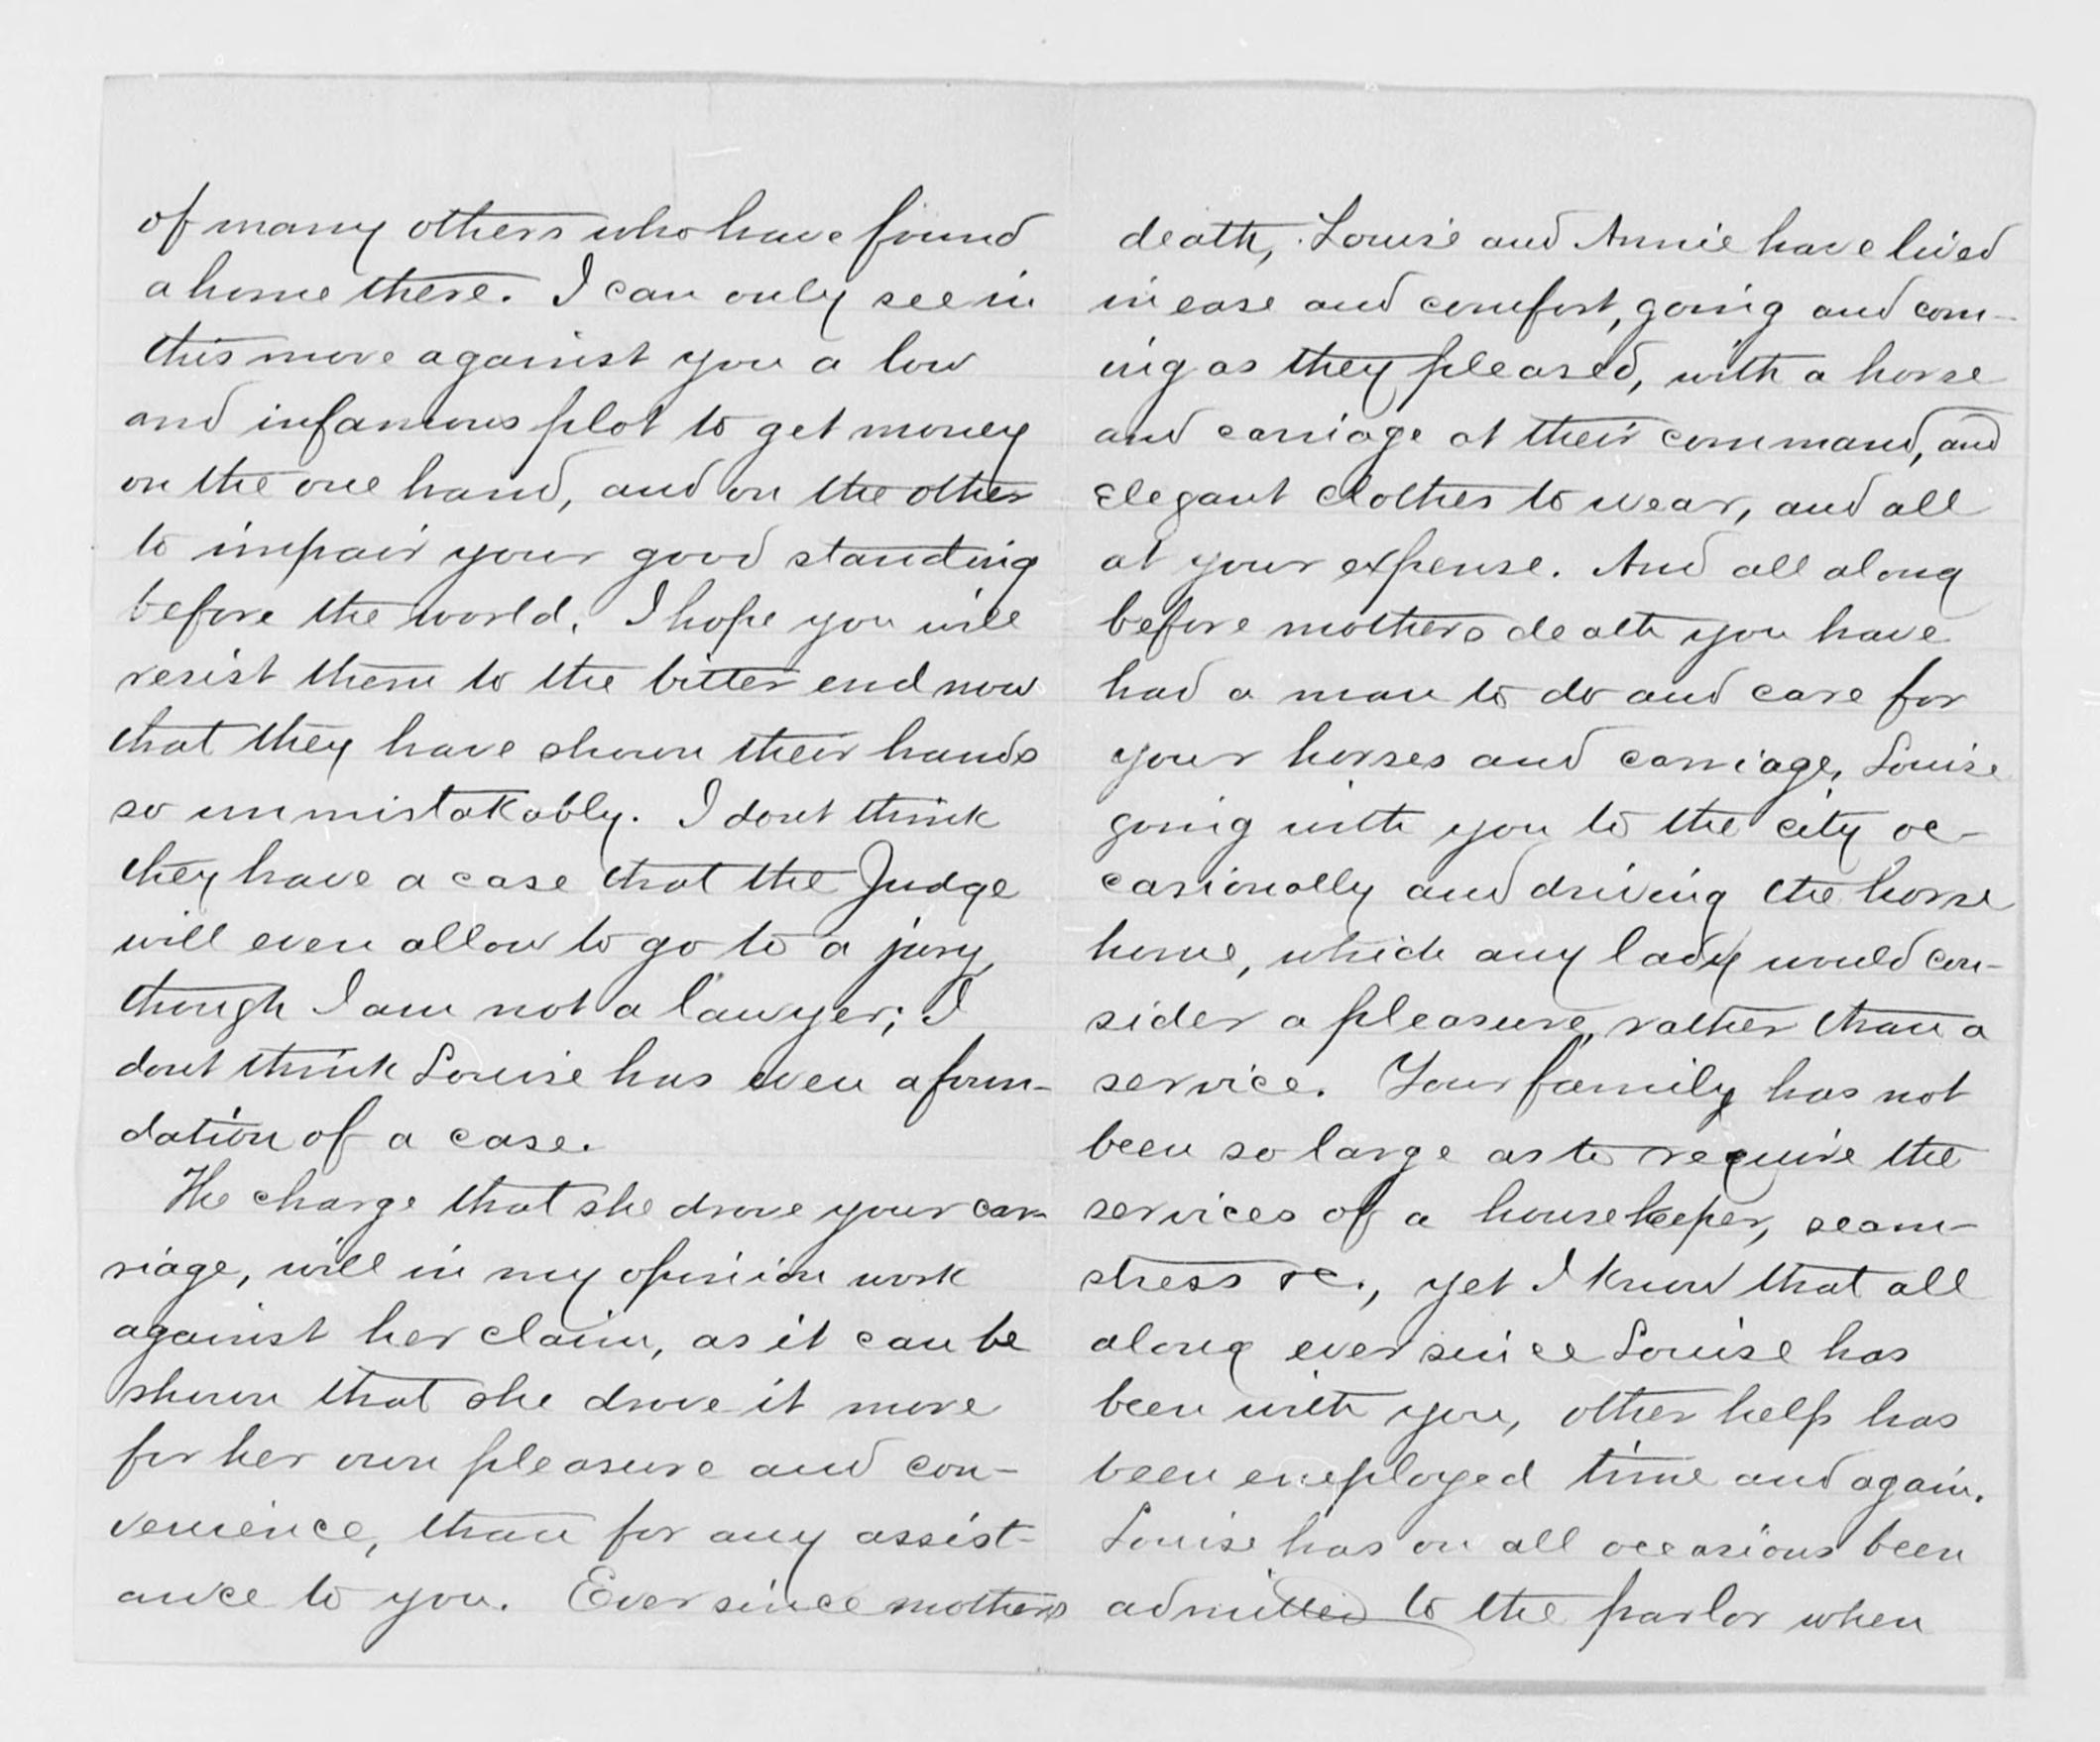 of many others who have found
a home there. I can only see in
this move against you a low
and infamous plot to get money
on the one hand, and on the other
to impair your good standing
before the world. I hope you will
resist them to the bitter end now
that they have shown their hands
so unmistakably. I dont think
they have a case that the Judge
will even allow to go to a jury,
though I am not a lawyer; I
dont think Louise has even a foun-
dation of a case.
The charge that she drove your car-
riage, will in my opinion work
against her claim, as it can be
shown that she drove it more
for her own pleasure and con-
venience, than for any assist-
ance to you. Ever since mothers
death, Louise and Annie have lived
in ease and comfort, going and com-
ing as they pleased, with a horse
and carriage at their command, and
elegant clothes to wear, and all
at your expense. And all along
before mothers death you have
had a man to do and care for
your horses and carriage, Louise
going with you to the city oc-
casionally and driving the horse
home, which any lady would con-
sider a pleasure, rather than a
service. Your family has not
been so large as to require the
services of a housekeeper, seam-
stress &c., yet I know that all
along ever since Louise has
been with you, other help has
been employed time and again.
Louise has on all occasions been
admitted to the parlor when